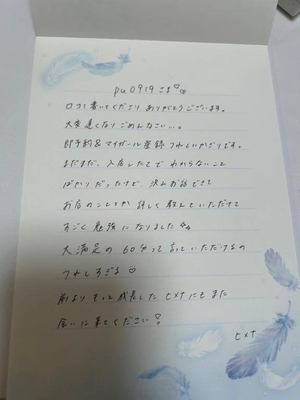 pu0919さま♡
口コミ書いてくださり ありがとうございます。
大変遅くなり ごめんなさい…。
即予約&マイガール登録 うれしいかぎりです。
まだまだ、入店したてで わからないこと
ばかりだったけど、沢山お話できて
お店のこととか 詳しく教えていただけて
すごく 勉強になりました
大満足の 60分って言っていただけるの
うれしすぎる♡
前より もっと成長した ヒメナにも また
会いに来てください!
ヒメナ